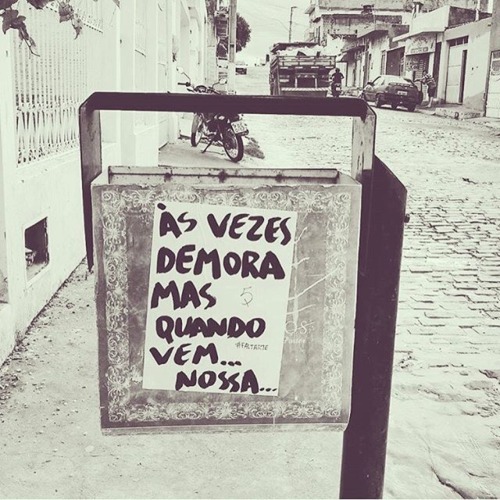 ÀS VEZES
DEMORA
MAS
QUANDO
VEM...
NOSSA...